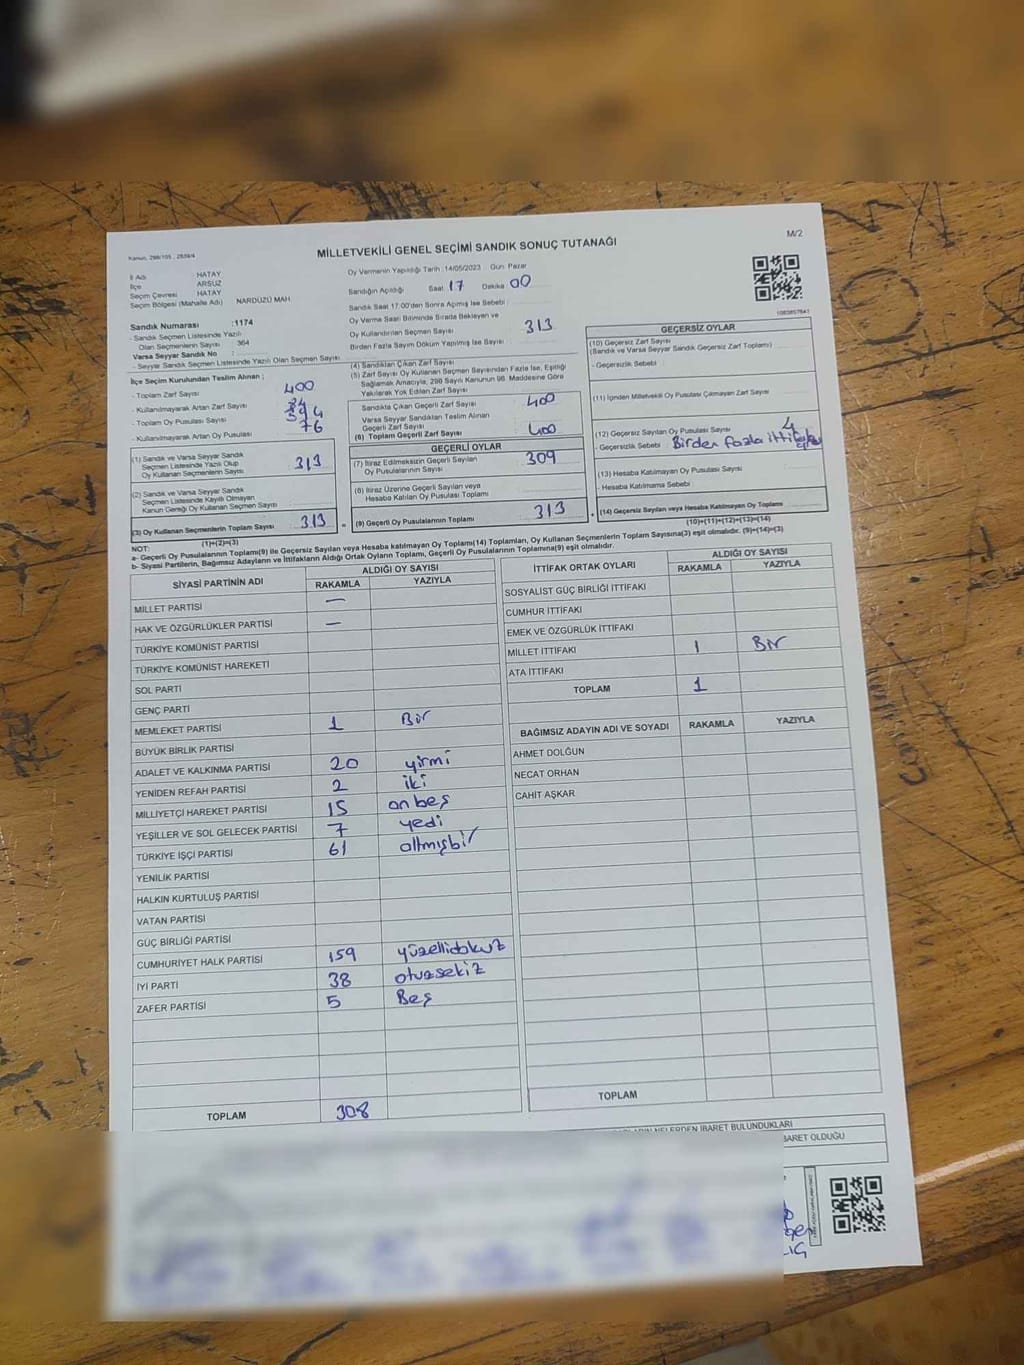 Kanun, 298/105 , 2839/4
MİLLETVEKİLİ GENEL SEÇİMİ SANDIK SONUÇ TUTANAĞI
M/2
İl Adı : HATAY
İlçe : ARSUZ
Seçim Çevresi : HATAY
Seçim Bölgesi (Mahalle Adı) NARDÜZÜ MAH
Sandık Numarası :1174
- Sandık Seçmen Listesinde Yazılı
Olan Seçmenlerin Sayısı : 364
Varsa Seyyar Sandık No :
- Seyyar Sandık Seçmen Listesinde Yazılı Olan Seçmen Sayısı:
Oy Vermenin Yapıldığı Tarih :14/05/2023 Gün: Pazar
Sandığın Açıldığı Saat 17 Dakika 00
Sandık Saat 17:00'den Sonra Açılmış İse Sebebi :
Oy Verme Saati Bitiminde Sırada Bekleyen ve
Oy Kullandırılan Seçmen Sayısı 313
Birden Fazla Sayım Döküm Yapılmış İse Sayısı :
İlçe Seçim Kurulundan Teslim Alınan ;
- Toplam Zarf Sayısı 400
- Kullanılmayarak Artan Zarf Sayısı
- Toplam Oy Pusulası Sayısı
- Kullanılmayarak Artan Oy Pusulası 76
(1) Sandık ve Varsa Seyyar Sandık
Seçmen Listesinde Yazılı Olup
Oy Kullanan Seçmenlerin Sayısı 313
(2) Sandık ve Varsa Seyyar Sandık
Seçmen Listesinde Kayıtlı Olmayan
Kanun Gereği Oy Kullanan Seçmen Sayısı
(3) Oy Kullanan Seçmenlerin Toplam Sayısı 313
(1)+(2)=(3)
(4) Sandıktan Çıkan Zarf Sayısı
(5) Zarf Sayısı Oy Kullanan Seçmen Sayısından Fazla İse, Eşitliği
Sağlamak Amacıyla, 298 Sayılı Kanunun 98. Maddesine Göre
Yakılarak Yok Edilen Zarf Sayısı
Sandıkta Çıkan Geçerli Zarf Sayısı 400
Varsa Seyyar Sandıktan Teslim Alınan
Geçerli Zarf Sayısı
(6) Toplam Geçerli Zarf Sayısı 400
GEÇERLİ OYLAR
(7) İtiraz Edilmeksizin Geçerli Sayılan
Oy Pusulalarının Sayısı 309
(8) İtiraz Üzerine Geçerli Sayılan veya
Hesaba Katılan Oy Pusulası Toplamı
(9) Geçerli Oy Pusulalarının Toplamı 313
1083857641
GEÇERSİZ OYLAR
(10) Geçersiz Zarf Sayısı
(Sandık ve Varsa Seyyar Sandık Geçersiz Zarf Toplamı)
- Geçersizlik Sebebi :
(11) İçinden Milletvekili Oy Pusulası Çıkmayan Zarf Sayısı
(12) Geçersiz Sayılan Oy Pusulası Sayısı 4
- Geçersizlik Sebebi : Birden fazla ittifaka
(13) Hesaba Katılmayan Oy Pusulası Sayısı
- Hesaba Katılmama Sebebi :
(14) Geçersiz Sayılan veya Hesaba Katılmayan Oy Toplamı
(10)+(11)+(12)+(13)=(14)
NOT:
a- Geçerli Oy Pusulalarının Toplamı(9) ile Geçersiz Sayılan veya Hesaba katılmayan Oy Toplamı(14) Toplamları, Oy Kullanan Seçmenlerin Toplam Sayısına(3) eşit olmalıdır. (9)+(14)=(3)
b- Siyasi Partilerin, Bağımsız Adayların ve İttifakların Aldığı Ortak Oyların Toplamı, Geçerli Oy Pusulalarının Toplamına(9) eşit olmalıdır.
SİYASİ PARTİNİN ADI ALDIĞI OY SAYISI
RAKAMLA YAZIYLA
MİLLET PARTİSİ —
HAK VE ÖZGÜRLÜKLER PARTİSİ —
TÜRKİYE KOMÜNİST PARTİSİ
TÜRKİYE KOMÜNİST HAREKETİ
SOL PARTİ
GENÇ PARTİ
MEMLEKET PARTİSİ 1 Bir
BÜYÜK BİRLİK PARTİSİ
ADALET VE KALKINMA PARTİSİ 20 yirmi
YENİDEN REFAH PARTİSİ 2 iki
MİLLİYETÇİ HAREKET PARTİSİ 15 on beş
YEŞİLLER VE SOL GELECEK PARTİSİ 7 yedi
TÜRKİYE İŞÇİ PARTİSİ 61 altmışbir
YENİLİK PARTİSİ
HALKIN KURTULUŞ PARTİSİ
VATAN PARTİSİ
GÜÇ BİRLİĞİ PARTİSİ
CUMHURİYET HALK PARTİSİ 159 yüzellidokuz
İYİ PARTİ 38 otuzsekiz
ZAFER PARTİSİ 5 Beş
TOPLAM 308
İTTİFAK ORTAK OYLARI ALDIĞI OY SAYISI
RAKAMLA YAZIYLA
SOSYALİST GÜÇ BİRLİĞİ İTTİFAKI
CUMHUR İTTİFAKI
EMEK VE ÖZGÜRLÜK İTTİFAKI
MİLLET İTTİFAKI 1 Bir
ATA İTTİFAKI
TOPLAM 1
BAĞIMSIZ ADAYIN ADI VE SOYADI RAKAMLA YAZIYLA
AHMET DOLĞUN
NECAT ORHAN
CAHİT AŞKAR
TOPLAM
NELERDEN İBARET BULUNDUKLARI
İBARET OLDUĞU